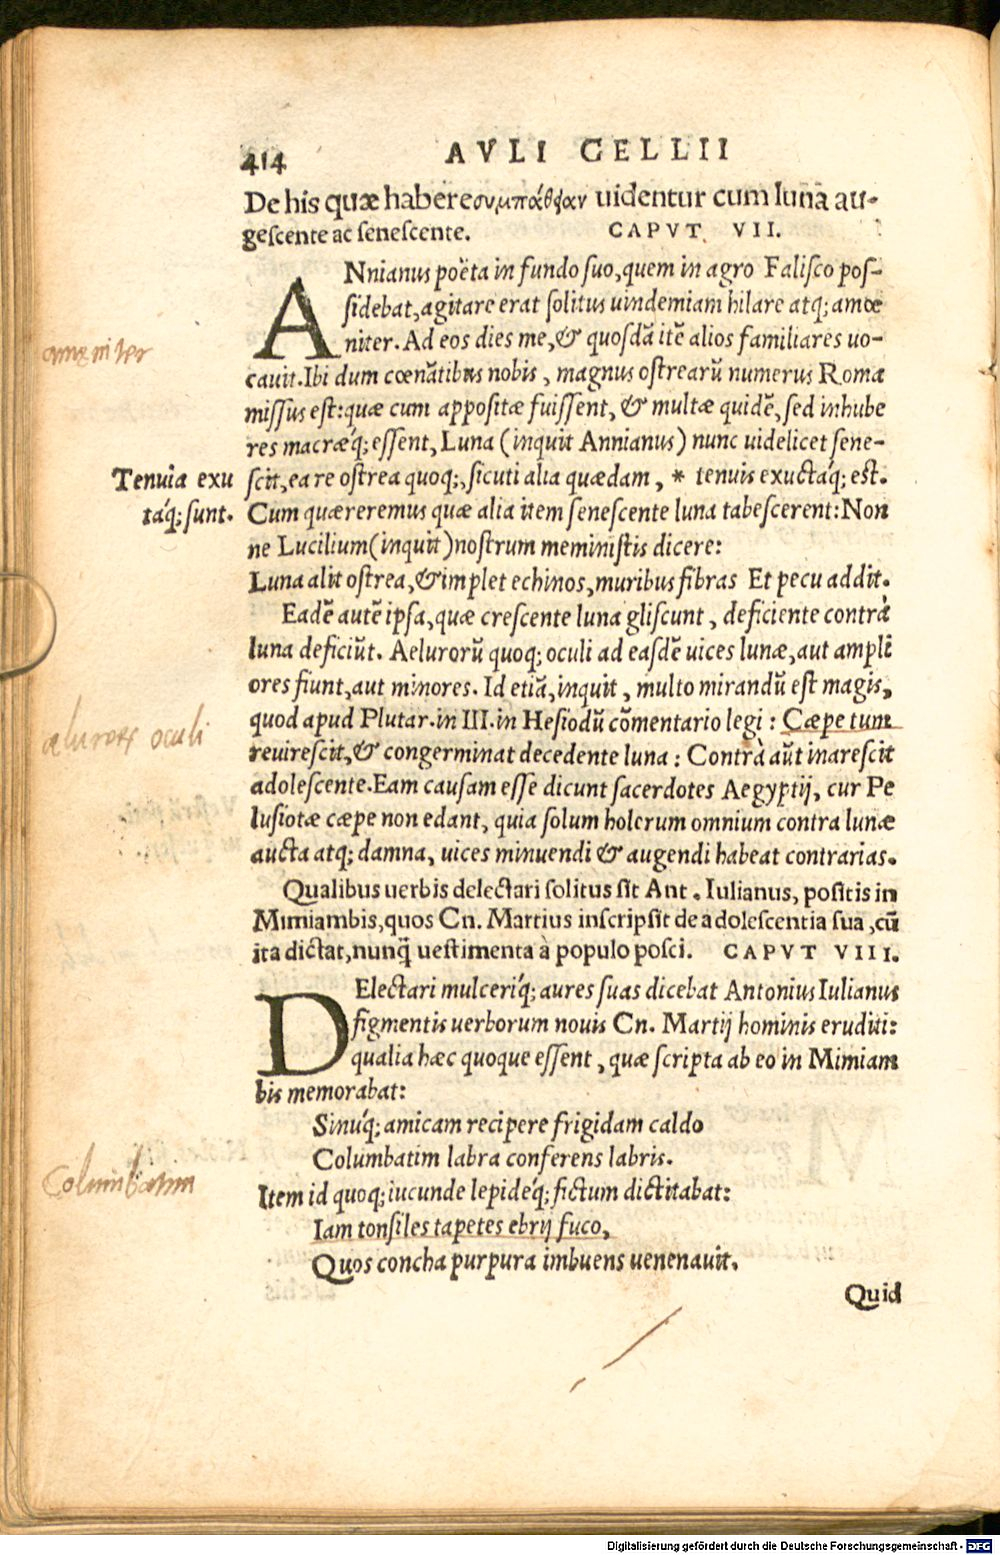 414 AVLI GELLII
De his quæ habere συμπάθειαν uidentur cum luna au-
gescente ac senescente. CAPVT VII.
ANnianus poëta in fundo suo, quem in agro Falisco pos-
sidebat, agitare erat solitus uindemiam hilare atq; amœ
niter. Ad eos dies me, & quosdā itē alios familiares uo-
cauit. Ibi dum cœnātibus nobis, magnus ostrearū numerus Roma
missus est: quæ cum appositæ fuissent, & multæ quidē, sed inhube
res macræq́; essent, Luna (inquit Annianus) nunc uidelicet sene-
scit, ea re ostrea quoq;, sicuti alia quædam, * tenuis exuctáq; est.
Cum quæreremus quæ alia item senescente luna tabescerent: Non
ne Lucilium (inquit) nostrum meministis dicere:
Luna alit ostrea, & implet echinos, muribus fibras Et pecu addit.
Eadē autē ipsa, quæ crescente luna gliscunt, deficiente contrà
luna deficiūt. Aelurorū quoq; oculi ad easdē uices lunæ, aut ampli
ores fiunt, aut minores. Id etiā, inquit, multo mirandū est magis,
quod apud Plutar. in III. in Hesiodū cōmentario legi: Cæpe tum
reuirescit, & congerminat decedente luna: Contrà aūt inarescit
adolescente. Eam causam esse dicunt sacerdotes Aegyptij, cur Pe
lusiotæ cæpe non edant, quia solum holerum omnium contra lunæ
aucta atq; damna, uices minuendi & augendi habeat contrarias.
Qualibus uerbis delectari solitus sit Ant. Iulianus, positis in
Mimiambis, quos Cn. Martius inscripsit de adolescentia sua, cū
ita dictat, nunq̄ uestimenta à populo posci. CAPVT VIII.
DElectari mulceriq́; aures suas dicebat Antonius Iulianus
figmentis uerborum nouis Cn. Martij hominis eruditi:
qualia hæc quoque essent, quæ scripta ab eo in Mimiam
bis memorabat:
Sinúq; amicam recipere frigidam caldo
Columbatim labra conferens labris.
Item id quoq; iucunde lepidéq; fictum dictitabat:
Iam tonsiles tapetes ebrij fuco,
Quos concha purpura imbuens uenenauit.
Quid
amœniter
Tenuia exu
táq; sunt.
ælurorū oculi
Columbatim
Digitalisierung gefördert durch die Deutsche Forschungsgemeinschaft - DFG